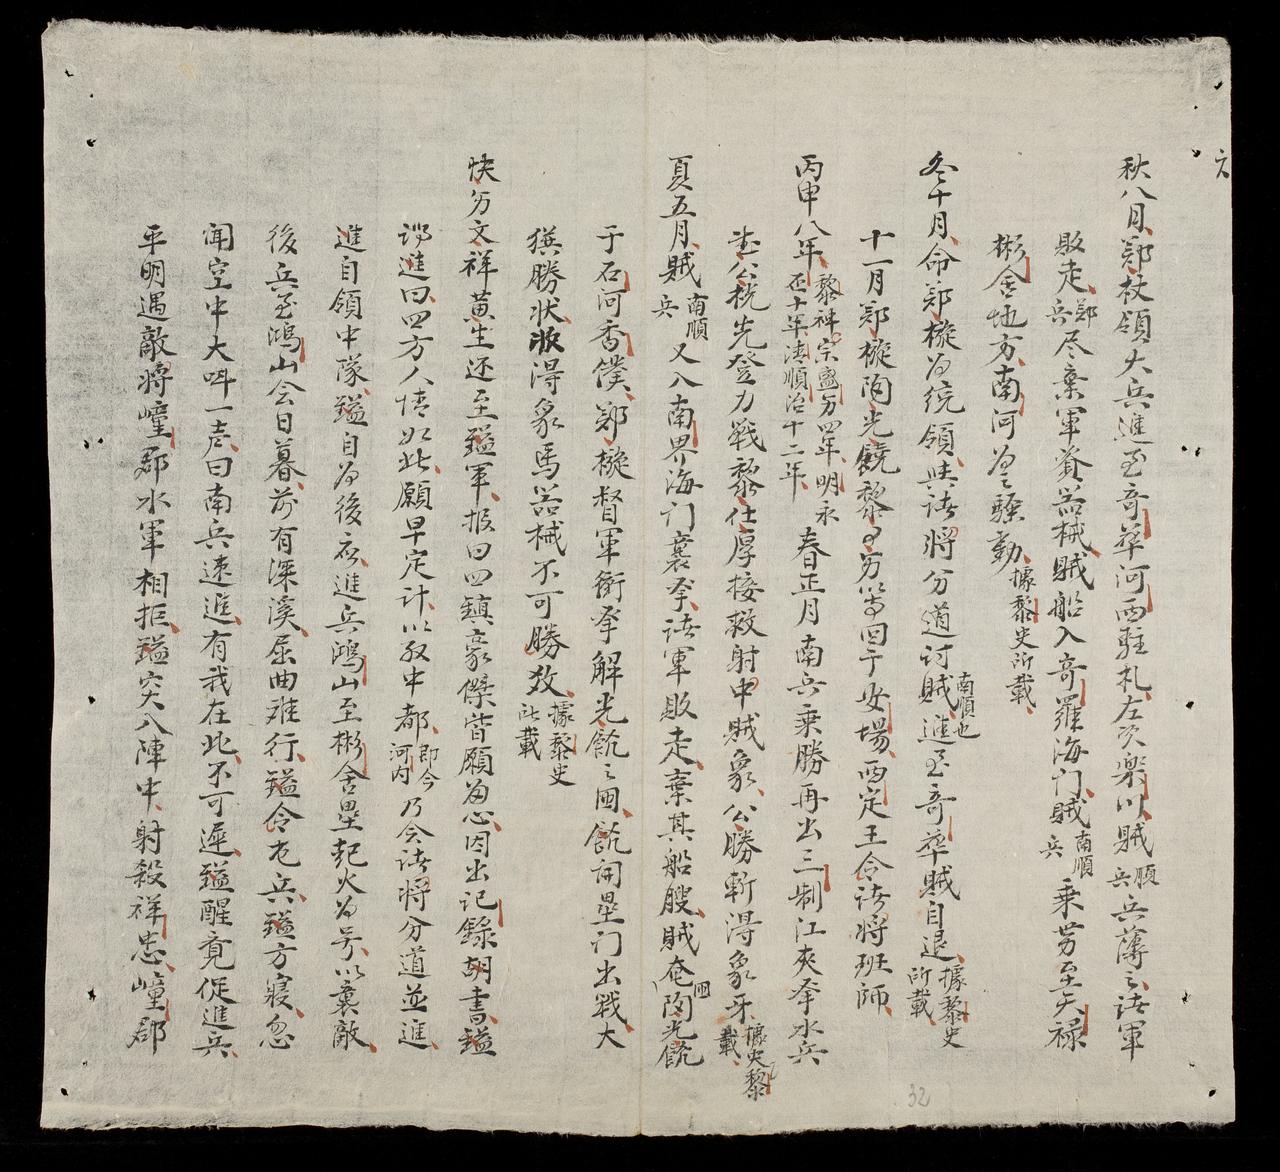 六
秋八月鄭杖領大兵進至奇華河西駐札左次樂川賊順兵兵薄之諸軍
敗走鄭兵尽棄軍資器械賊船入奇羅海门賊南順兵乘勢至天禄
彬舍地方南河為之騷動據黎史所載
冬十月命鄭檖为統領諸將分道討賊南順也進至奇華賊自退據黎史所載
十一月鄭檖陶光饒黎等回于安場西定王令諸將班師
丙申八年黎神宗盛万四年明永歷十年清順治十二年春正月南兵乘勝再出三制江夾挙水兵
公桄先登力戰黎仕厚接救射中賊象公勝斬得象牙據史黎載
夏五月賊南順兵又入南界海门襄挙諸軍敗走棄其船艘賊奄圍陶光饒
于石河香僕鄭檖督軍衝挙解光饒之圍饒開壘门出戰大
獲勝状收得象馬器械不可勝数據黎史所載
快另文祥黄生还至鎰軍报曰四鎮豪傑皆願为心因出记錄胡書鎰
進曰四方人情如此願早定計以取中都即今河内乃令諸將分道並進
進自領中隊鎰自为後應進兵鴻山至彬舍壘起火为号以襄敵
後兵至鴻山会日暮前有深溪屈曲难行鎰令屯兵鎰方寢忽
闻空中大呌一声曰南兵速進有我在此不可遲鎰醒竟促進兵
平明遇敵將㠉郡水軍相拒鎰突入陣中射殺祥忠㠉郡
32